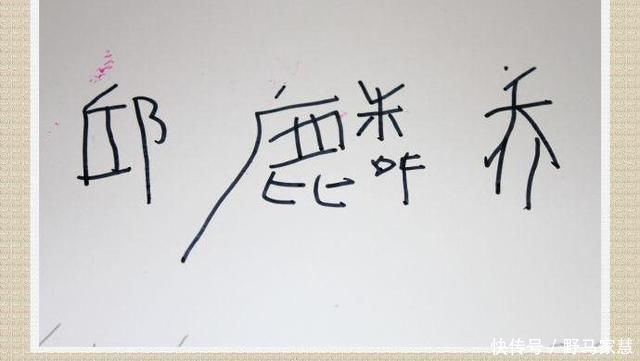 邱麟乔
快传号/野马家慧